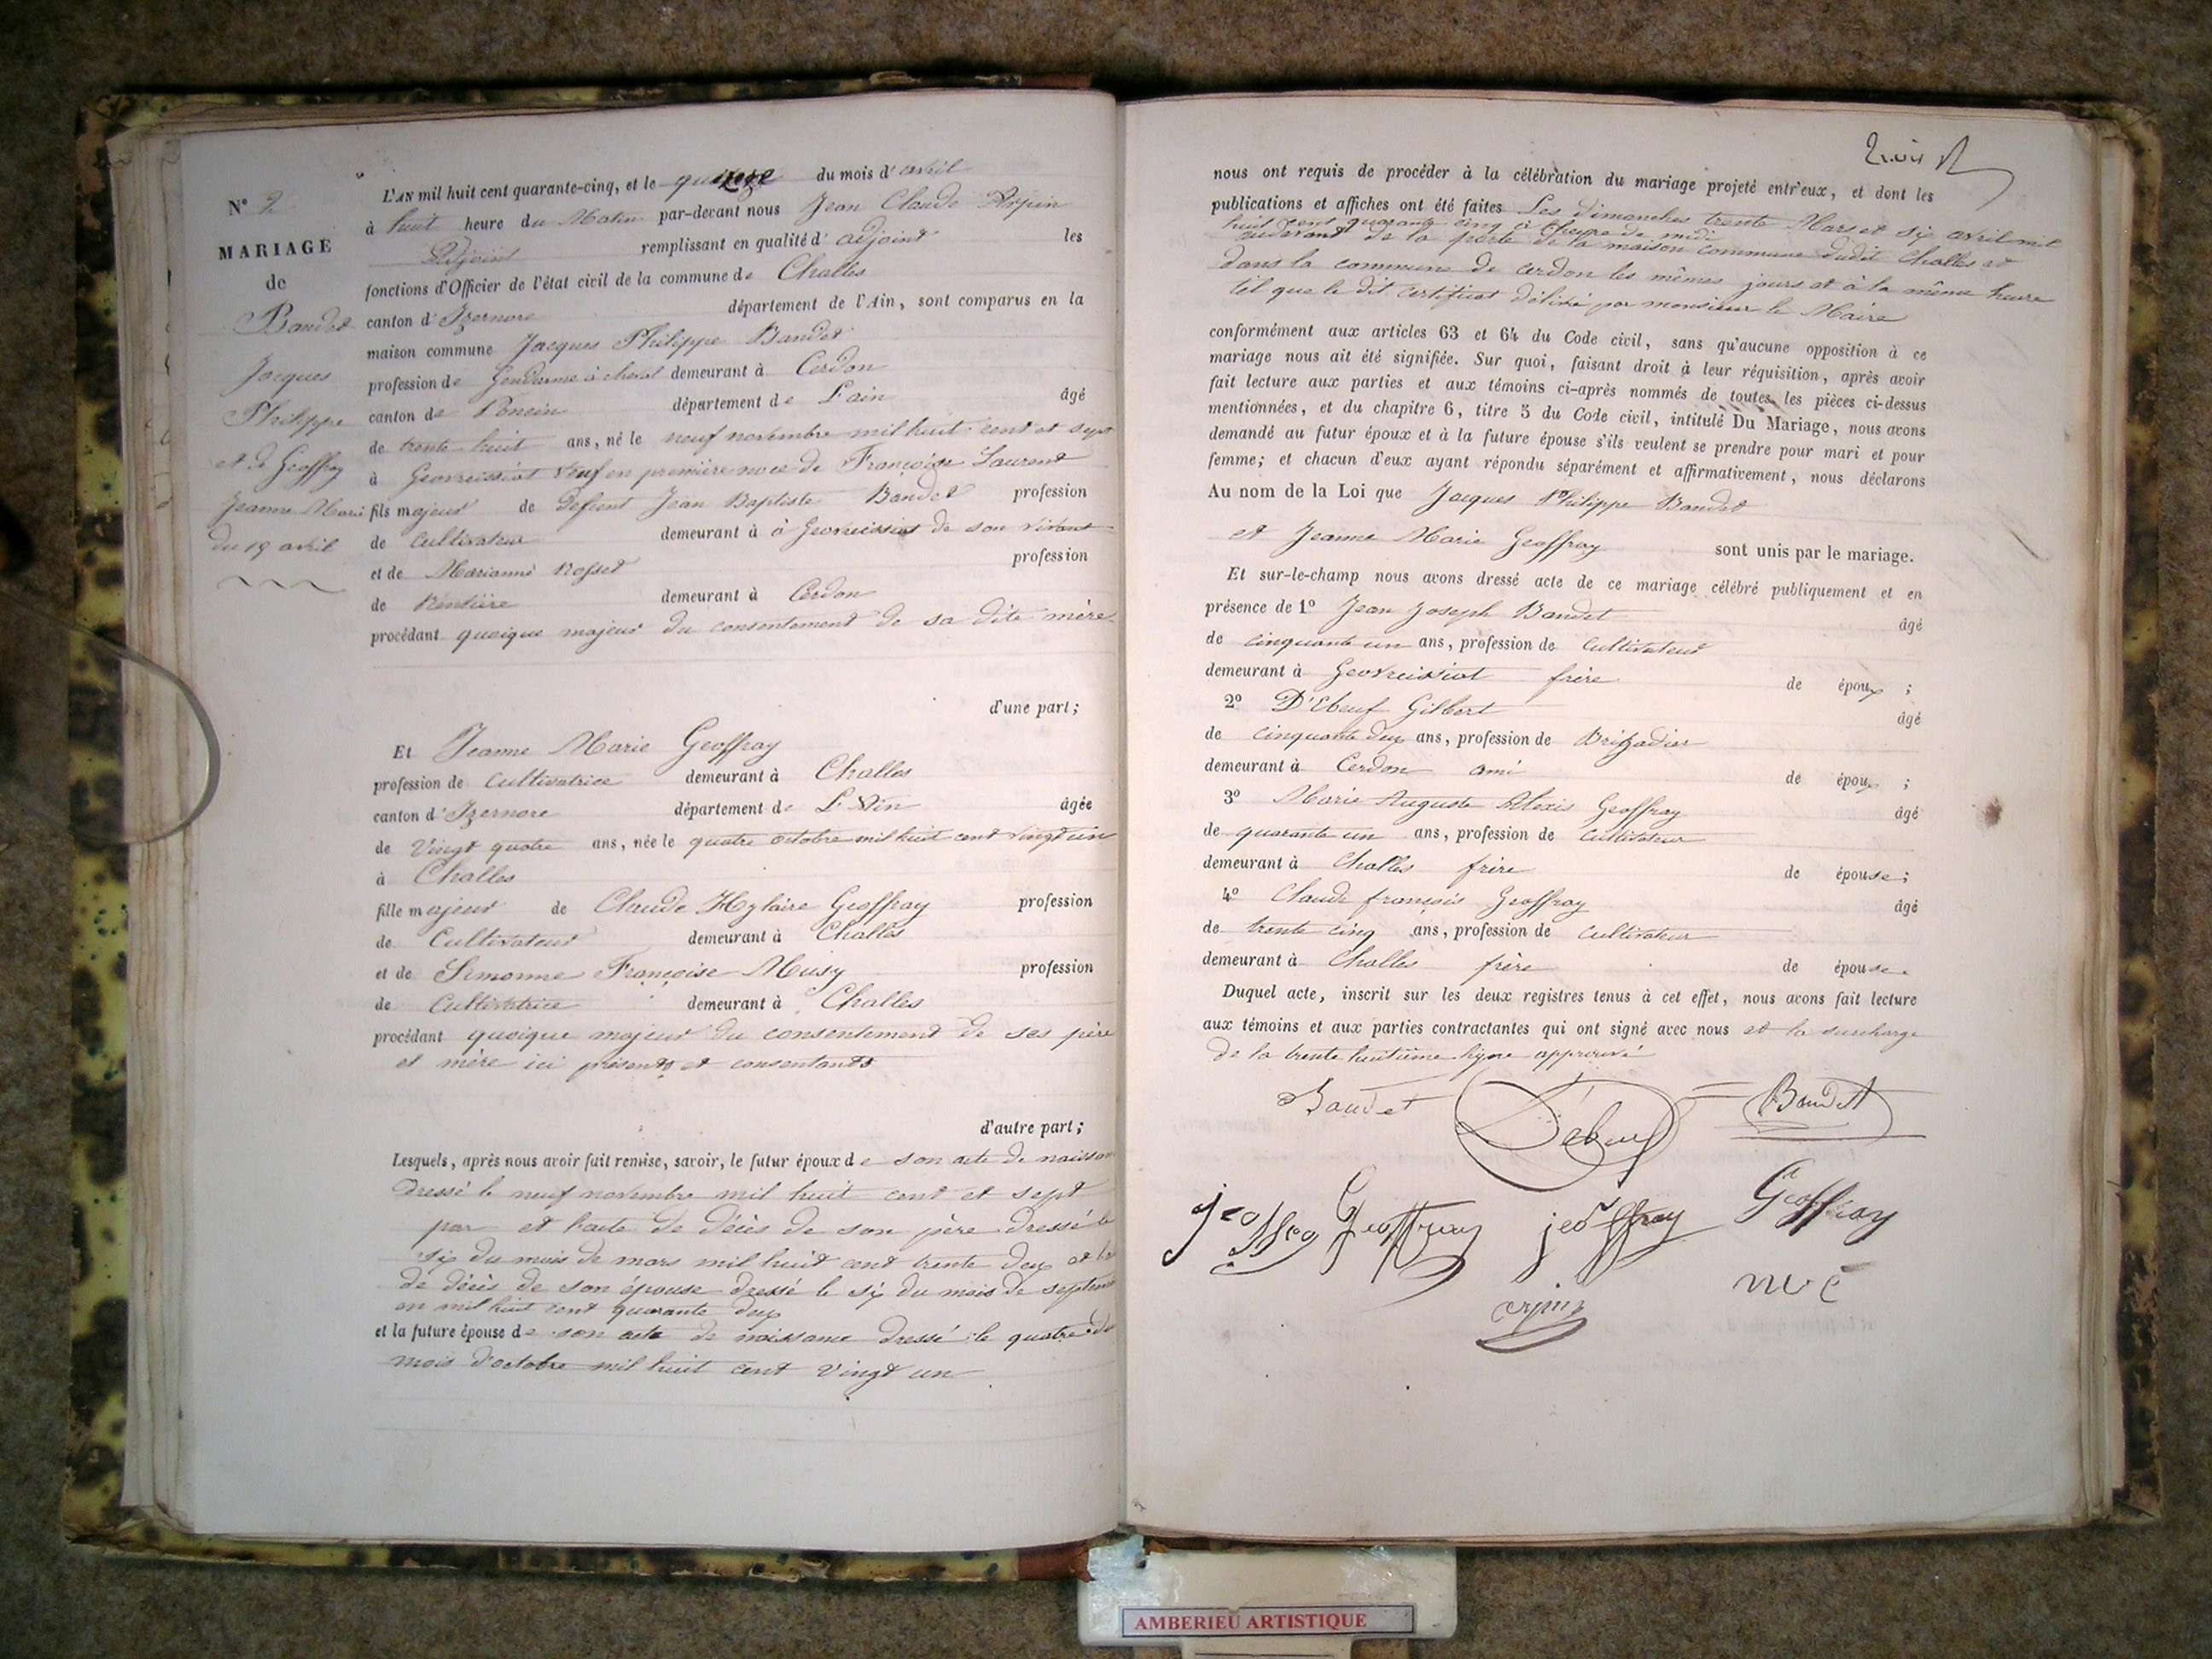 N° 2
MARIAGE
de
Baudet
Jacques
Philippe
et de Geoffray
Jeanne Marie
du 19 avril
L'AN mil huit cent quarante-cinq, et le quinze du mois d'avril
à huit heure du Matin par-devant nous Jean Claude Arpin
Adjoint remplissant en qualité d'adjoint les
fonctions d'Officier de l'état civil de la commune de Challes
canton d'Izernore département de l'Ain, sont comparus en la
maison commune Jacques Philippe Baudet
profession de Gendarme à cheval demeurant à Cerdon
canton de Poncin département de L'ain âgé
de trente huit ans, né le neuf novembre mil huit cent et sept
à Geovreissiat Veuf en première noce de Françoise Laurent
fils majeur de Defunt Jean Baptiste Baudet profession
de Cultivateur demeurant à à Geovreissiat de son vivant
et de Marianne Rosset profession
de Rentière demeurant à Cerdon
procédant quoique majeur du consentement de sa dite mère
d'une part;
Et Jeanne Marie Geoffray
profession de Cultivatrice demeurant à Challes
canton d'Izernore département de L'Ain âgée
de Vingt quatre ans, née le quatre octobre mil huit cent vingt un
à Challes
fille majeur de Claude Hylaire Geoffray profession
de Cultivateur demeurant à Challes
et de Simonne Françoise Musy profession
de Cultivatrice demeurant à Challes
procédant quoique majeur du consentement de ses père
et mère ici présents et consentants
d'autre part;
Lesquels, après nous avoir fait remise, savoir, le futur époux de son acte de naissan
dressé le neuf novembre mil huit cent et sept
par et l'acte de décès de son père dressé le
six du mois de mars mil huit cent trente deux et
de décès de son épouse dressé le six du mois de septem
en mil huit cent quarante deux
et la future épouse de son acte de naissance dressé le quatre du
mois d'octobre mil huit cent vingt un
nous ont requis de procéder à la célébration du mariage projeté entr'eux, et dont les
publications et affiches ont été faites Les dimanches trente Mars et six avril mil
huit cent quarante cinq à l'heure de midi
audevant de la porte de la maison commune dudit Challes et
dans la commune de cerdon les mêmes jours et à la même heure
tel que le dit certificat délivré par monsieur le Maire
conformément aux articles 63 et 64 du Code civil, sans qu'aucune opposition à ce
mariage nous ait été signifiée. Sur quoi, faisant droit à leur réquisition, après avoir
fait lecture aux parties et aux témoins ci-après nommés de toutes les pièces ci-dessus
mentionnées, et du chapitre 6, titre 5 du Code civil, intitulé Du Mariage, nous avons
demandé au futur époux et à la future épouse s'ils veulent se prendre pour mari et pour
femme; et chacun d'eux ayant répondu séparément et affirmativement, nous déclarons
Au nom de la Loi que Jacques Philippe Baudet
et Jeanne Marie Geoffray sont unis par le mariage.
Et sur-le-champ nous avons dressé acte de ce mariage célébré publiquement et en
présence de 1° Jean Joseph Baudet âgé
de cinquante un ans, profession de Cultivateur
demeurant à Geovreissiat frère de époux ;
2° D'Ebeuf Gilbert âgé
de cinquante deux ans, profession de Brigadier
demeurant à Cerdon ami de époux ;
3° Marie Auguste Alexis Geoffray âgé
de quarante un ans, profession de Cultivateur
demeurant à Challes frère de épouse ;
4° Claude françois Geoffray âgé
de trente cinq ans, profession de Cultivateur
demeurant à Challes frère de épouse.
Duquel acte, inscrit sur les deux registres tenus à cet effet, nous avons fait lecture
aux témoins et aux parties contractantes qui ont signé avec nous et la surcharge
de la trente huitième ligne approuvé
Baudet Debeuf Baudet
Geoffray jeoffray Geoffray
arpin
AMBERIEU ARTISTIQUE